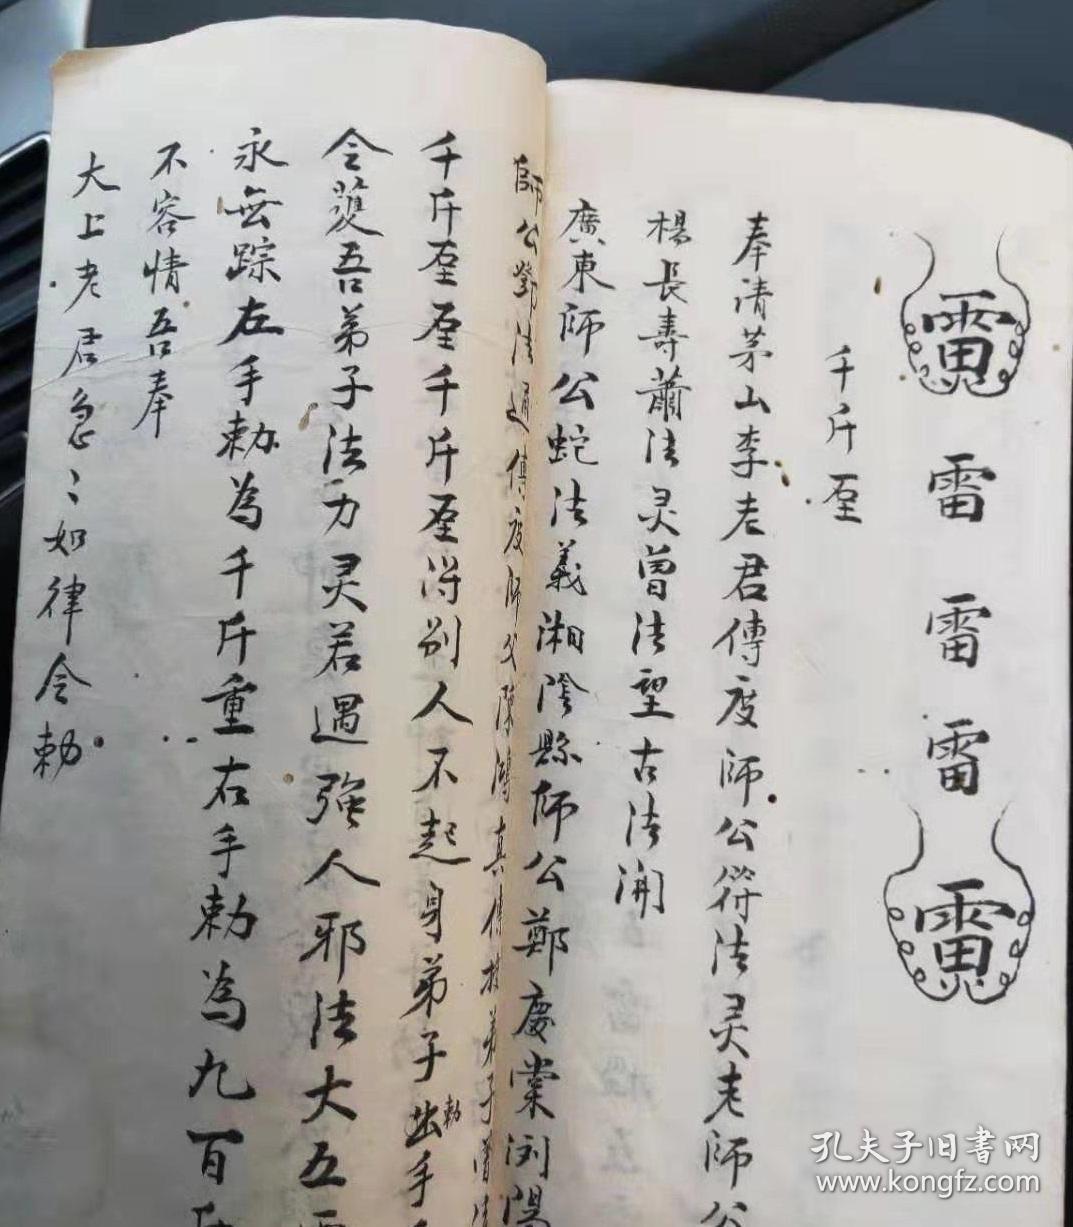 雷 雷 雷
千斤至
奉请茅山李老君傳度师公符法灵老师公
楊長壽蕭法灵曾法望古法開
廣東师公蛇法義湘陰縣师公鄭慶棠浏陽
師公鄧法通傳度师父陳鴻真傳 弟子曾法
千斤至至千斤至得别人不起身弟子勅出手千
令護吾弟子法力灵若遇強人邪法大五雷
永無踪左手勅為千斤重右手勅為九百斤
不容情吾奉
大上老君急〻如律令勅
孔夫子旧書网
www.kongfz.com